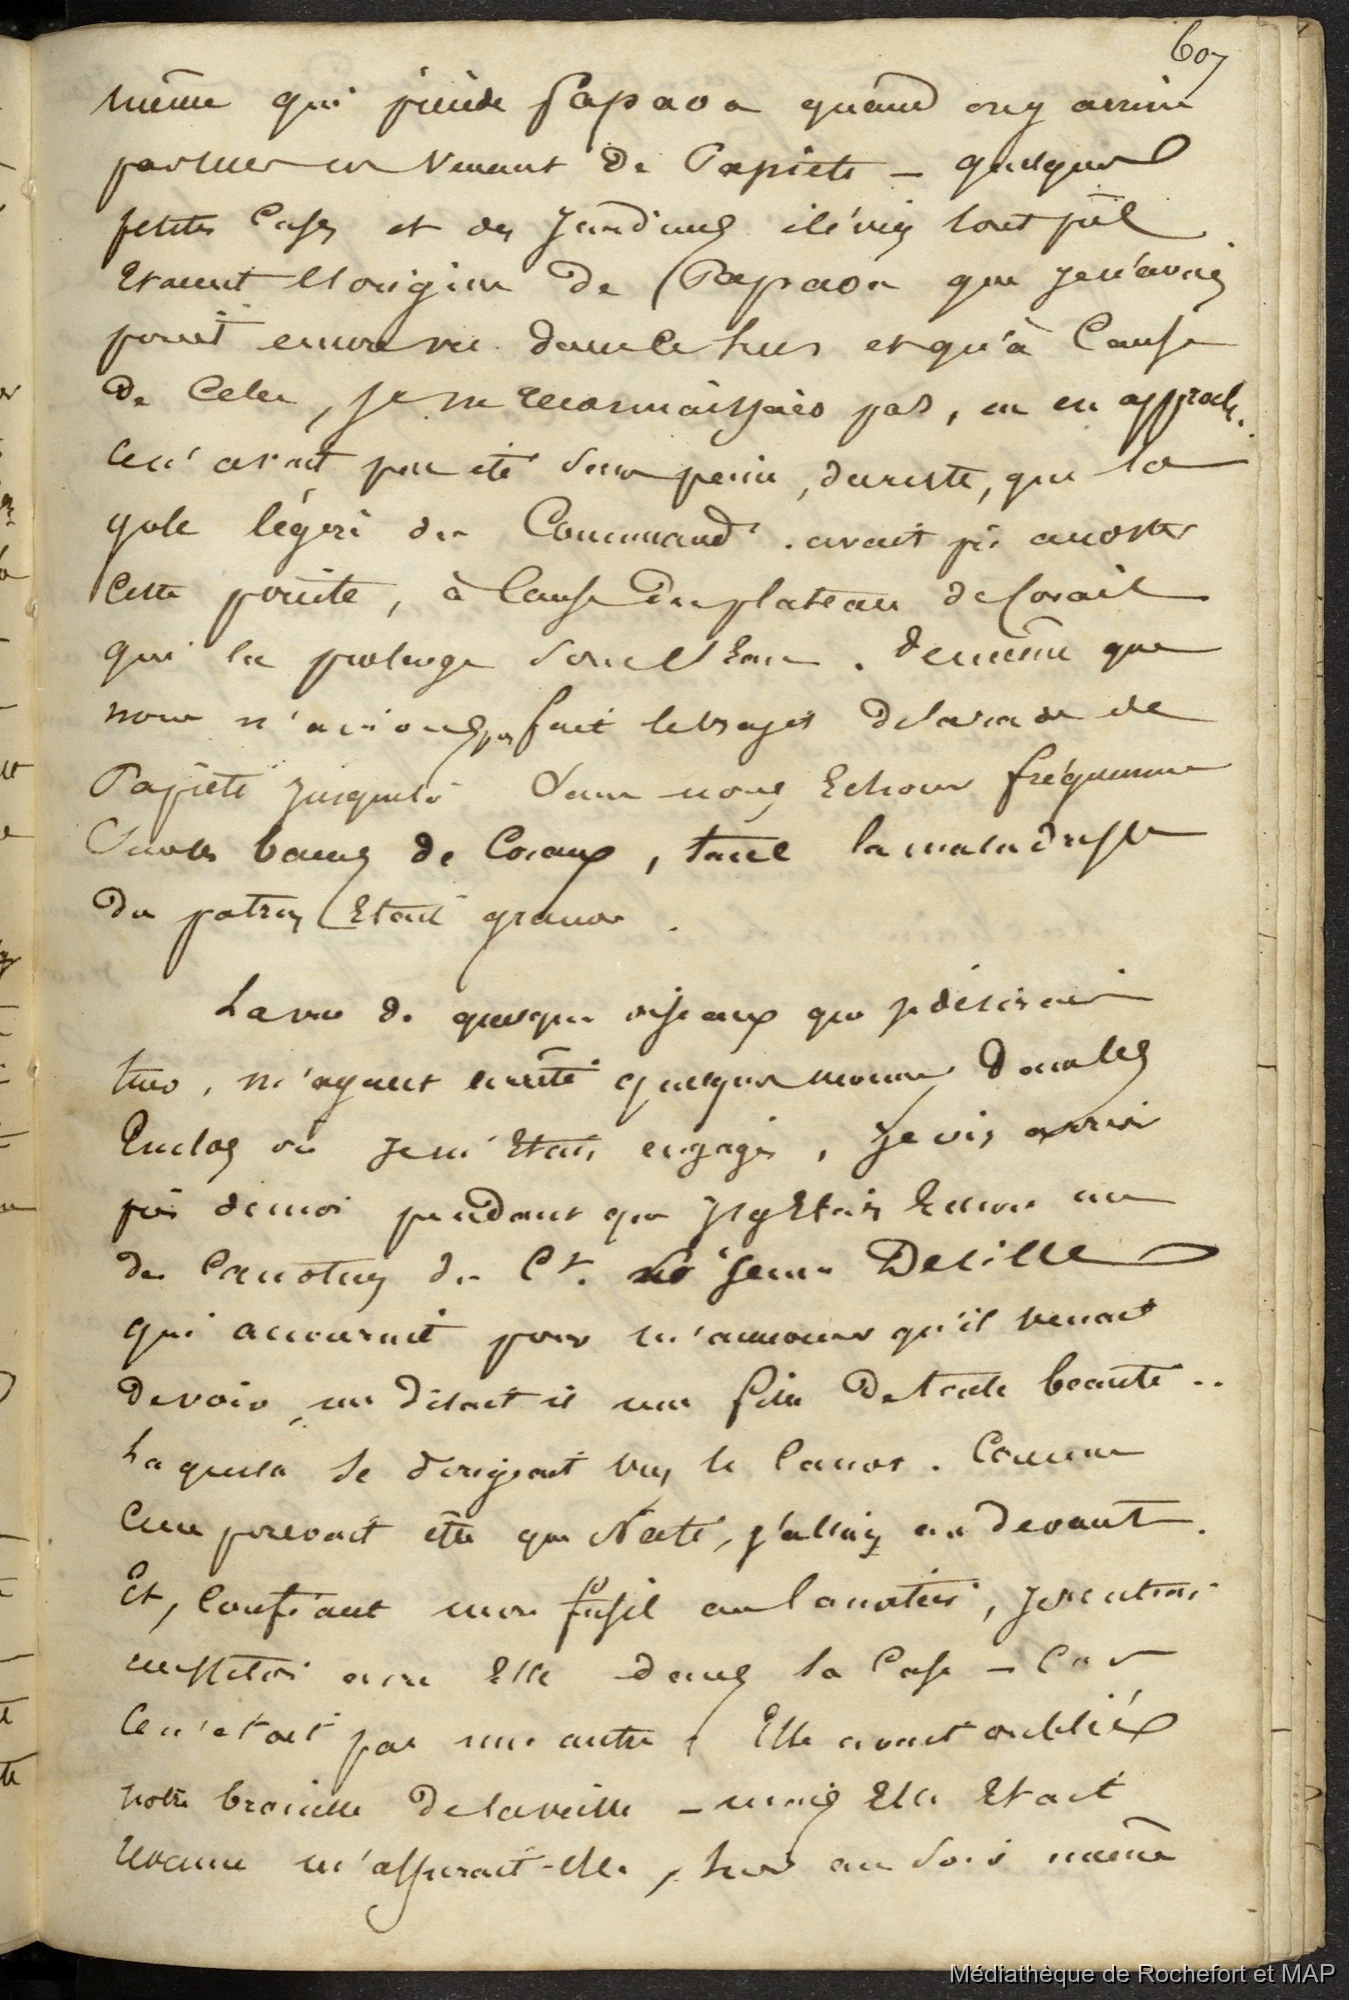 607
même qui précède Papaoa quand on y arrive
par mer en venant de Papiete – quelques
petites cases et des jardins élevés tout près
étaient l'origine de Papaoa que je n'avais
point encore vu dans ce sens et qu'à cause
de cela, je ne reconnaissais pas, en en approch.
Ce n'avait pas été sans peine, du reste, que la
yole légère du Command.t avait pu accoster
cette pointe, à cause du plateau de corail
qui la prolonge sous l'eau. De même que
nous n'avions pas fait le trajet de la rade de
Papiete jusque là sans nous échouer fréquemm
sur les bancs de coraux, tant la maladresse
du patron était grande.
La vue de quelques oiseaux que je désirais
tuer, m'ayant arrêté quelques momens dans les
enclos où je m'étais engagé, je vis arriver
près de moi pendant que j'y étais encore un
des canotiers du Ct. le jeune Delille
qui accourait pour m'annoncer qu'il venait
de voir, me disait il une fille de toute beauté ..
laquelle se dirigeait vers le canot. Comme
ce ne pouvait être que Nati, j'allais au devant.
Et, confiant mon fusil au canotier, je rentrai
aussitôt avec elle dans la case – car
ce n'était pas une autre. Elle avait oublié
notre brouille de la veille – mais elle était
revenue m'assurait-elle, hier au soir même
Médiathèque de Rochefort et MAP